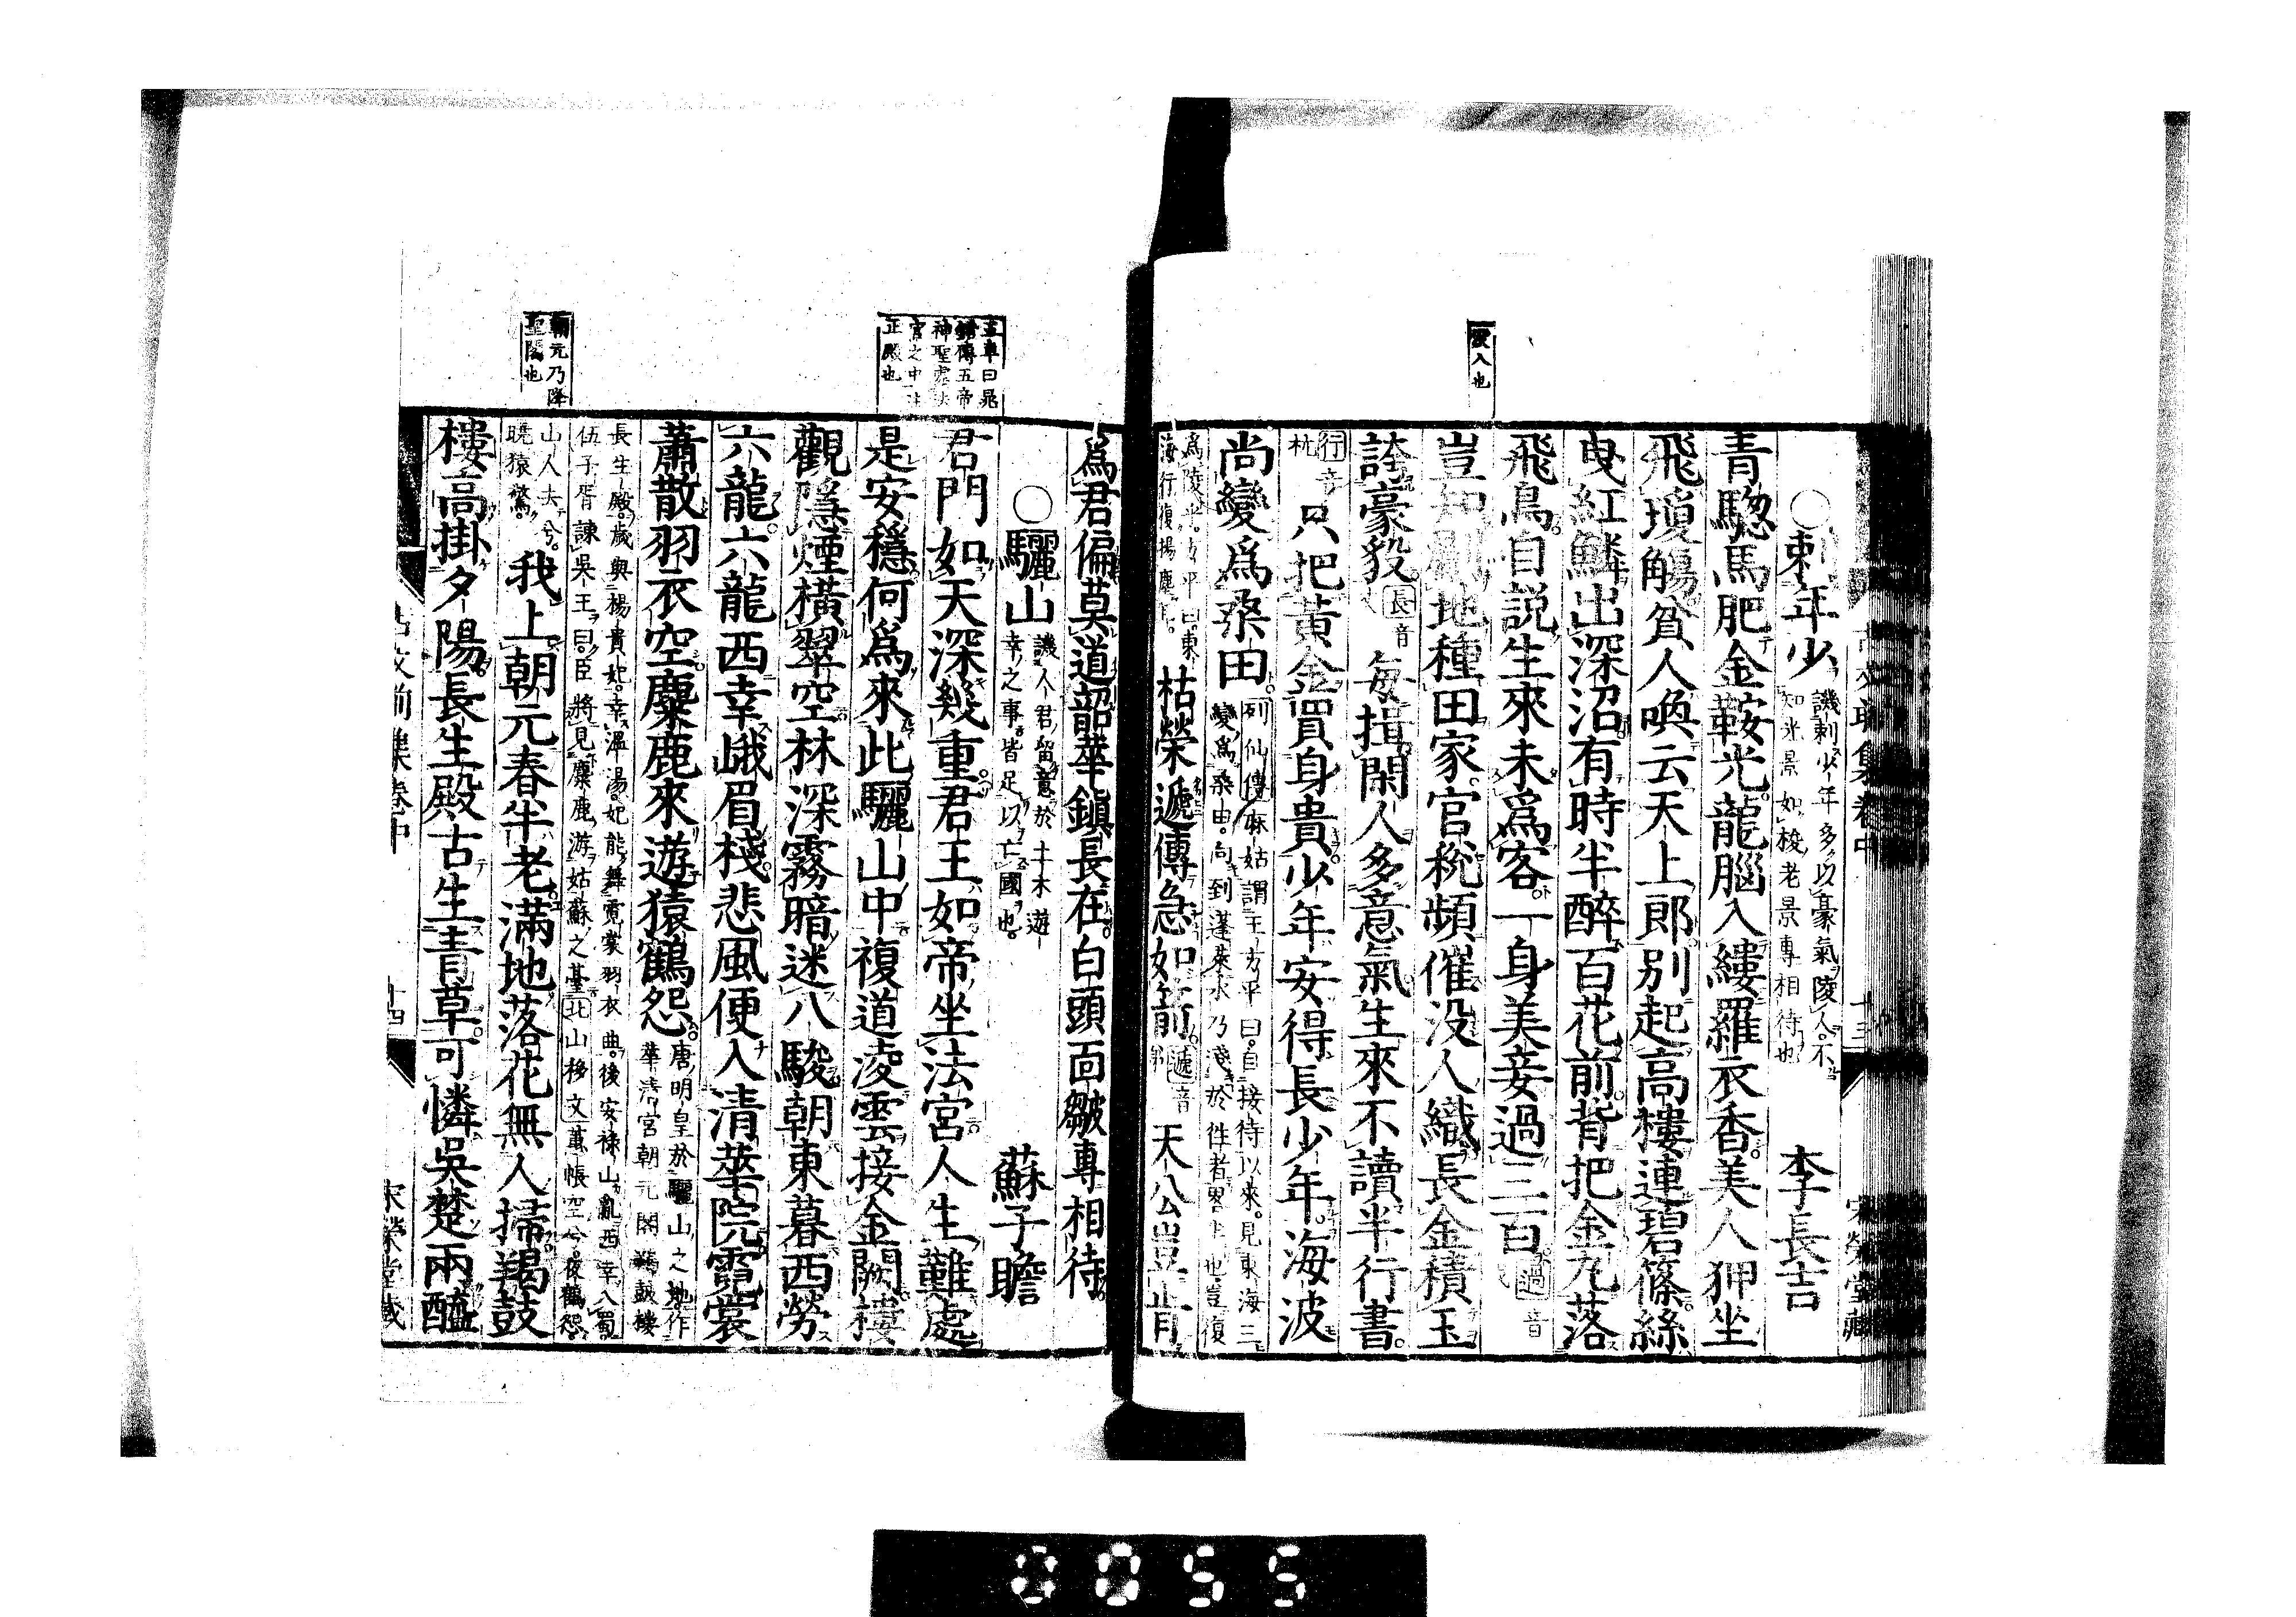 ○刺年少 譏刺少年多以豪氣陵人不
知光景如梭老景專相待也 李長吉
青驄馬肥金鞍光龍腦入縷羅衣香美人狎坐
飛瓊觴貧人喚云天上郎別起高樓連碧篠絲
曳紅鱗出深沼有時半醉百花前背把金丸落
飛鳥自説生來未爲客一身美妾過三百 過音
豈知劚地種田家官稅頻催沒人織長金積玉
誇豪毅 長音 每揖閑人多意氣生來不讀半行書
行音
杭 只把黃金買身貴少年安得長少年海波
尚變爲桑田 列仙傳麻姑謂王方平曰自接待以來見東海三
變爲桑田向到蓬萊水乃淺於徃者畧半也豈復
爲陵乎方平曰東
海行復揚塵 枯榮遞傳急如箭 遞音 天公豈肯
爲君偏莫道韶華鎮長在白頭面皺專相待
○驪山 譏人君留意於土木遊
幸之事皆足以亡國也 蘇子瞻
君門如天深幾重君王如帝坐法宮人生難處
是安穩何爲來此驪山中複道淩雲接金闕樓
觀隱煙橫翠空林深霧暗迷八駿朝東暮西勞
六龍六龍西幸峨眉棧悲風便入清華院霓裳
蕭散羽衣空麋鹿來遊猿鶴怨 唐明皇於驪山之地作
華清宮朝元閣羯鼓樓
長生殿歲與楊貴妃幸溫湯妃能舞霓裳羽衣曲後安祿山亂西幸入蜀
伍子胥諫吳王曰臣將見麋鹿游姑蘇之臺北山移文蕙帳空兮夜鶴怨
山人去兮
曉猿驚 我上朝元春半老滿地落花無人掃羯鼓
樓高掛夕陽長生殿古生青草可憐吳楚兩醯
古文前集卷中 十四 宋榮堂藏
古文前集卷中 十三 宋榮堂藏
入也
曰晁
錯傳五帝
神聖處
宮之中
正殿也
朝元乃降
聖閣也
0055